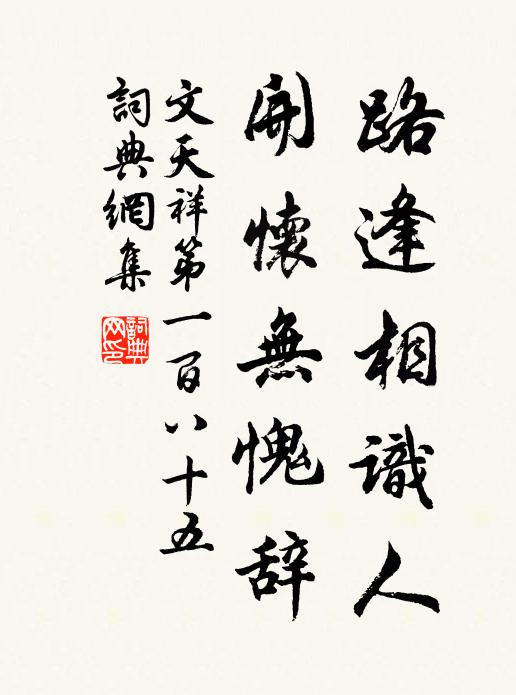 路逢相識人
開懷無愧辞
文天祥第一百八十五
詞典網集
詞典网印